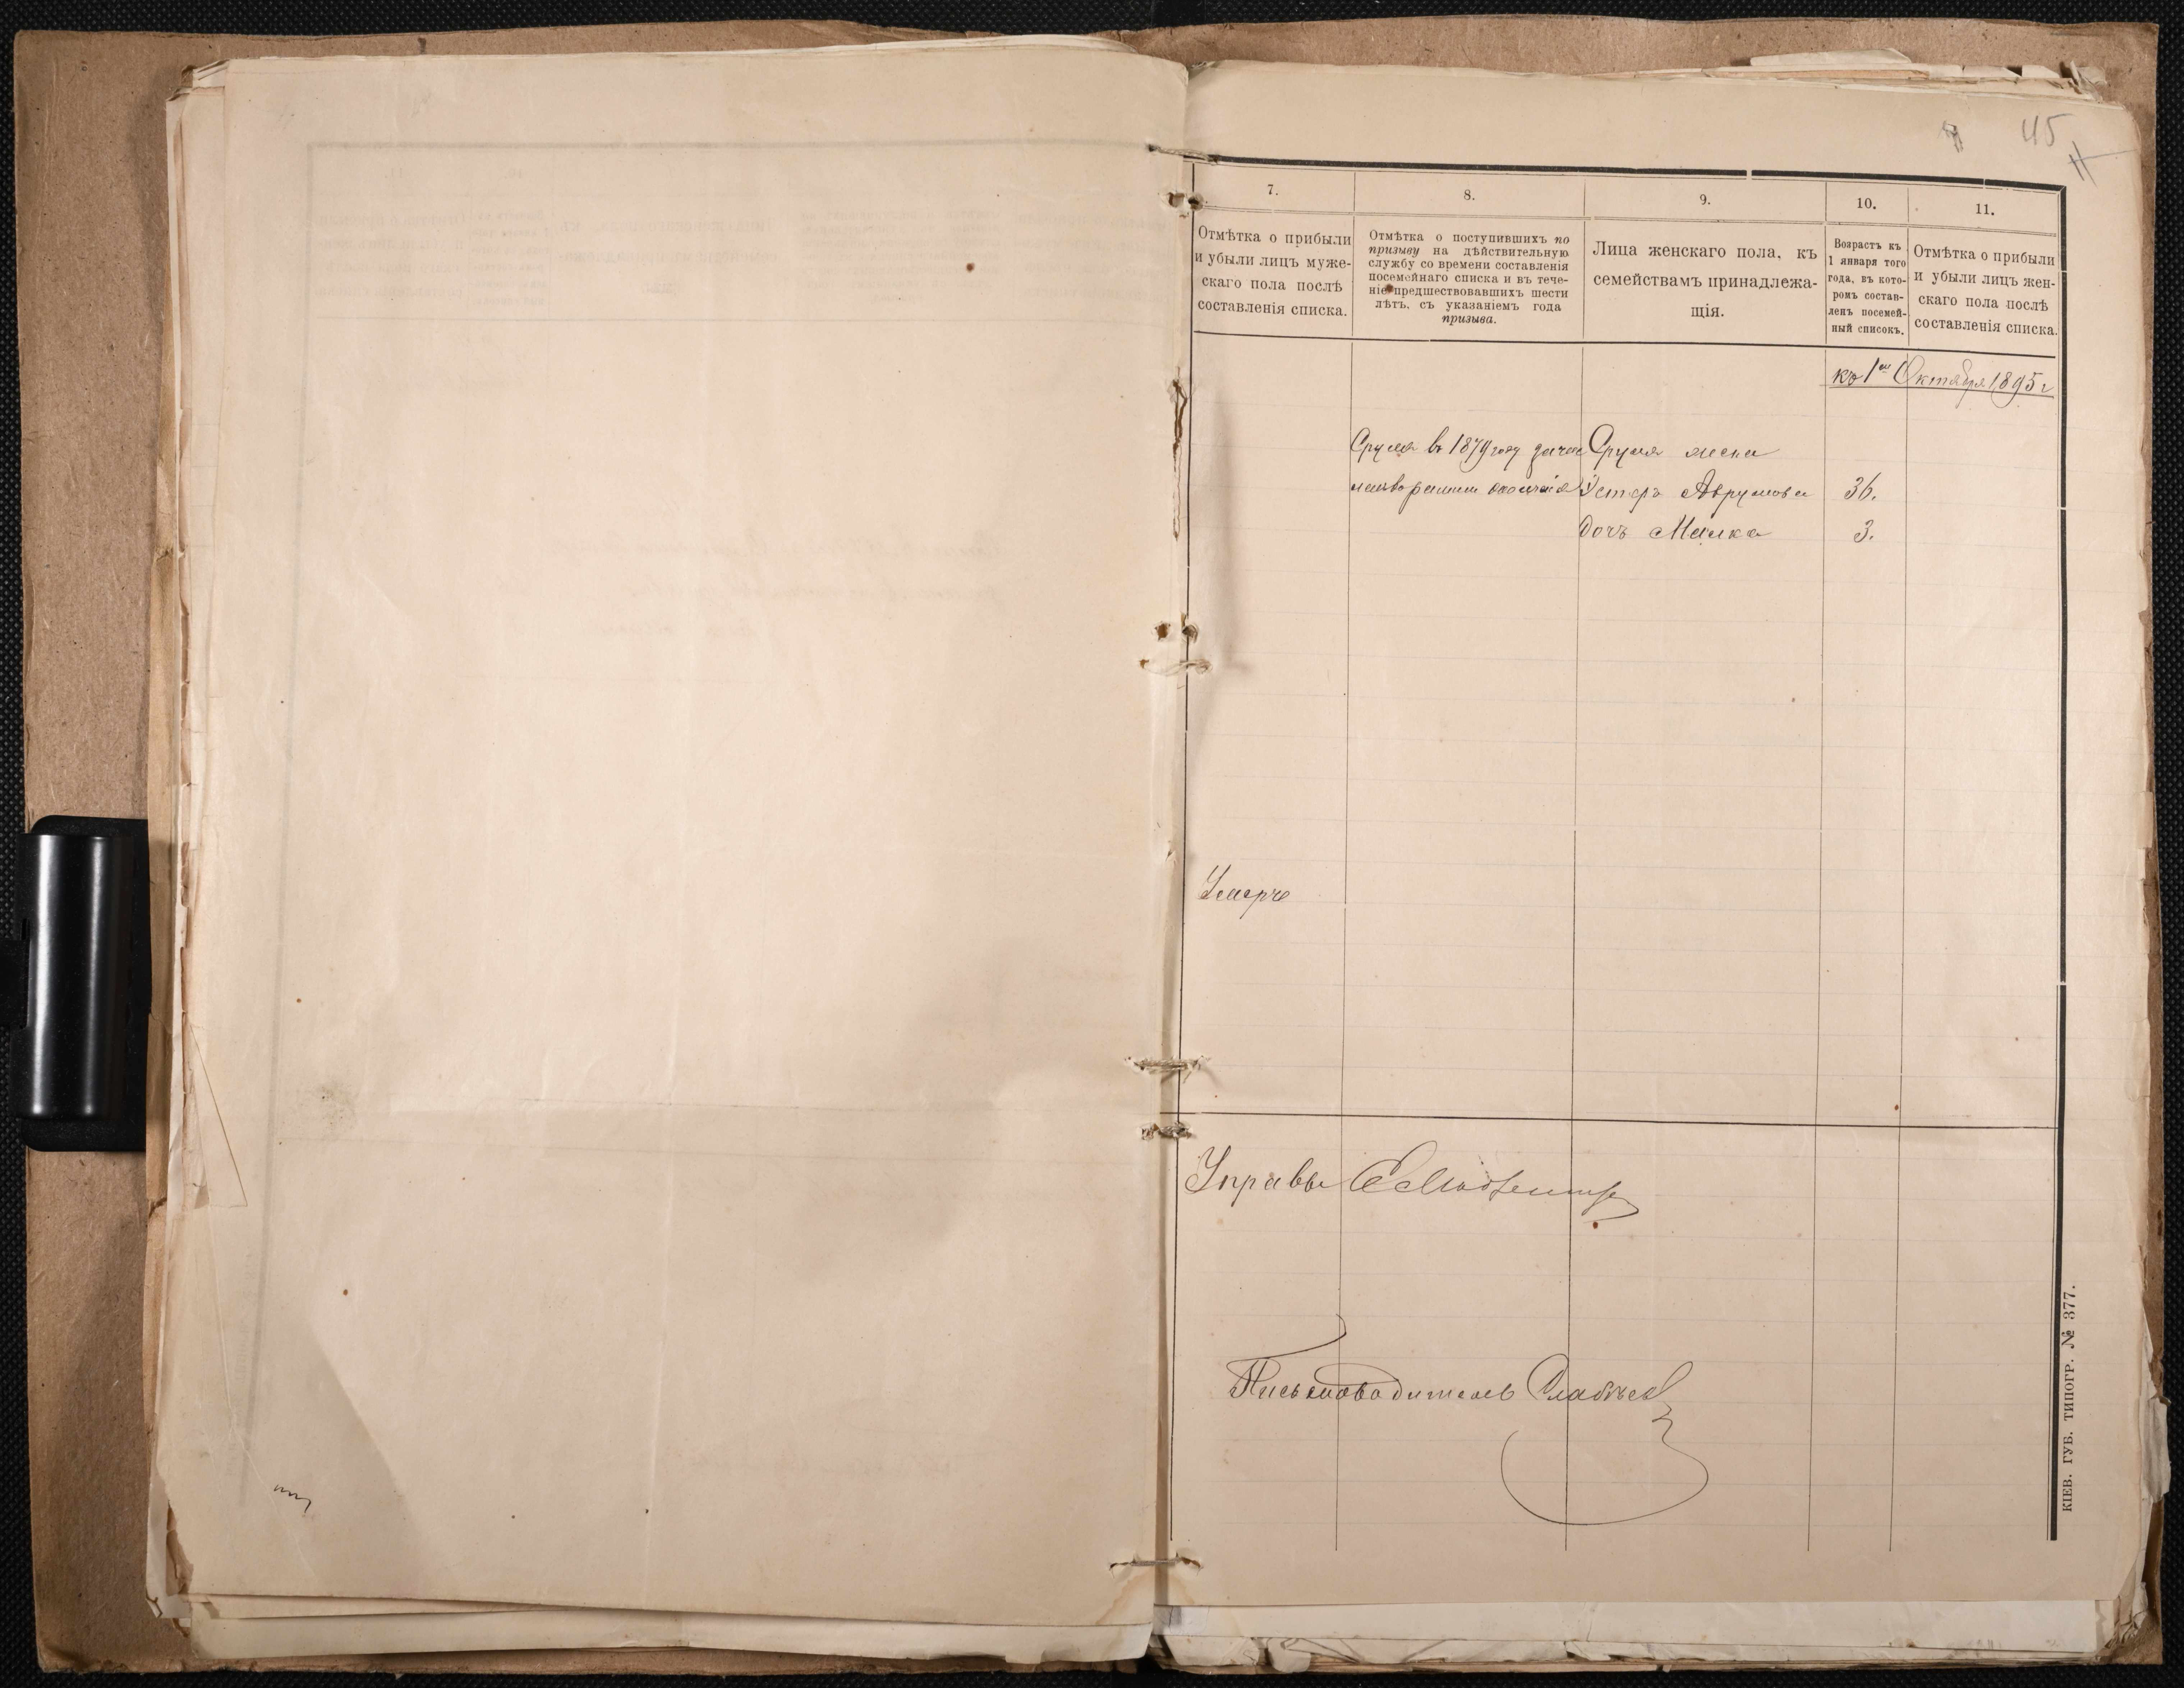 45
7.
8.
9.
10.
11.
Отмѣтка о прибыли
и убыли лицъ муже-
скаго пола послѣ
составленія списка.
Отмѣтка о поступившихъ по
призыву на дѣйствительную
службу со времени составленія
посемейнаго списка и въ тече-
ніе предшествовавшихъ шести
лѣтъ, съ указаніемъ года
призыва.
Лица женскаго пола, къ
семействамъ принадлежа-
щія.
Возрастъ къ
1 января того
года, въ кото-
ромъ состав-
ленъ посемей-
ный списокъ.
Отмѣтка о прибыли
и убыли лицъ жен-
скаго пола послѣ
составленія списка.
къ 1му Октября 1895 г
Сруля въ 1879 году зачис
Сруля жена
Естеръ Аврумова 36.
дочь Малка 3.
Умеръ
Управы
Письмоводитель
КІЕВ. ГУБ. ТИПОГР. № 377.